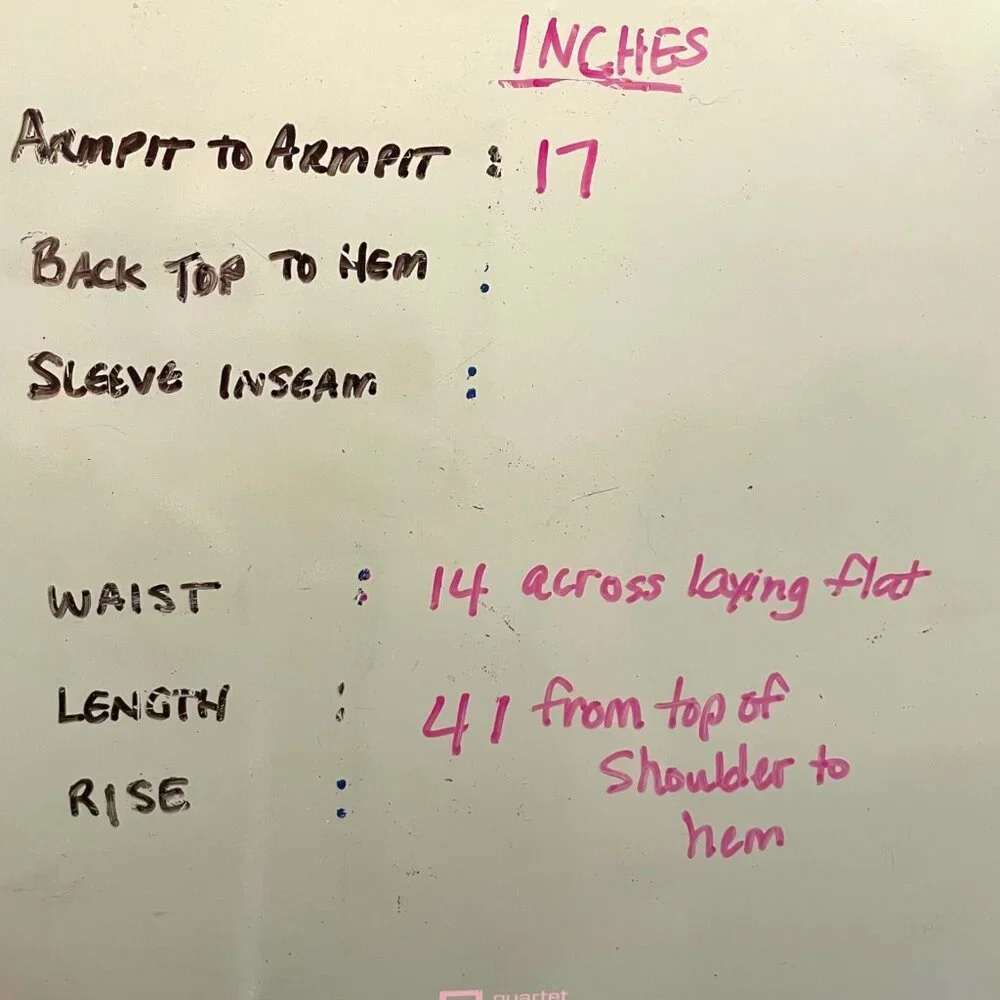 INCHES
ARMPIT TO ARMPIT : 17
BACK TOP TO HEM :
SLEEVE INSEAM :
WAIST : 14 across laying flat
LENGTH : 41 from top of
Shoulder to
RISE :
hem
quartet